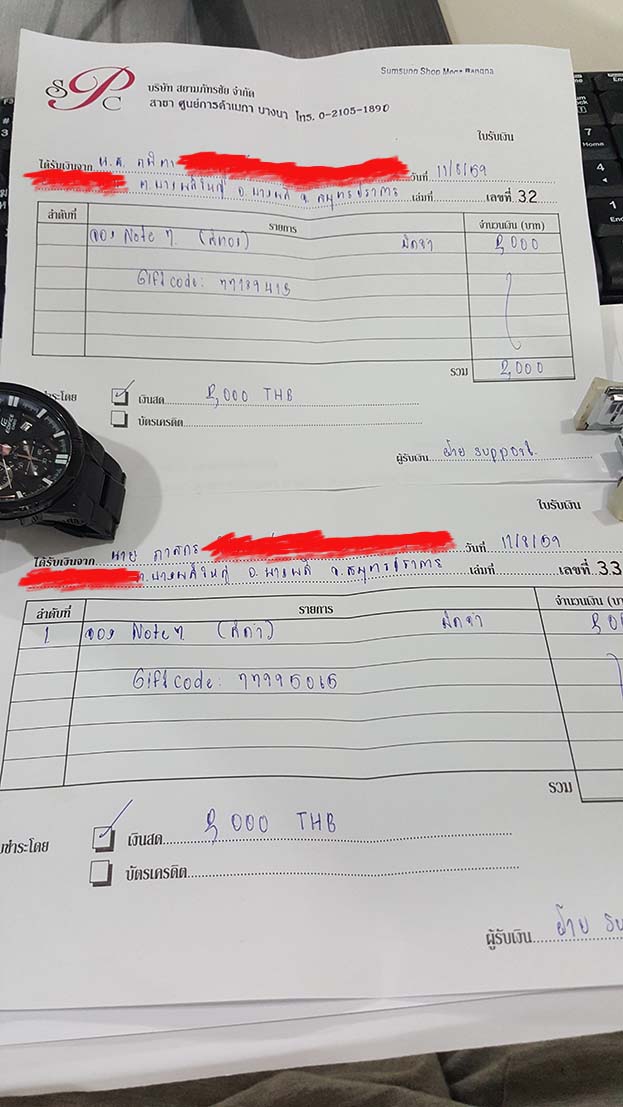 SPC
Sumsung Shop Mega Bangna
บริษัท สยามภัทรชัย จำกัด
สาขา ศูนย์การค้าเมกา บางนา โทร. 0-2105-1890
ใบรับเงิน
ได้รับเงินจาก น.ส. วันที่ 11/8/59
ต.บางพลีใหญ่ อ.บางพลี จ.สมุทรปราการ เล่มที่ เลขที่ 32
ลำดับที่ รายการ จำนวนเงิน (บาท)
จอง Note 7 (สีทอง) มัดจำ 2,000
Gift code: 77789415
รวม 2,000
ชำระโดย ✓ เงินสด 2,000 THB
บัตรเครดิต
ผู้รับเงิน ฝ้าย support
ใบรับเงิน
ได้รับเงินจาก นาย ภาสกร วันที่ 11/8/59
ต.บางพลีใหญ่ อ.บางพลี จ.สมุทรปราการ เล่มที่ เลขที่ 33
ลำดับที่ รายการ จำนวนเงิน (บา
1 จอง Note 7 (สีดำ) มัดจำ
Gift code: 77795065
รวม
ชำระโดย ✓ เงินสด 2,000 THB
บัตรเครดิต
ผู้รับเงิน ฝ้าย su